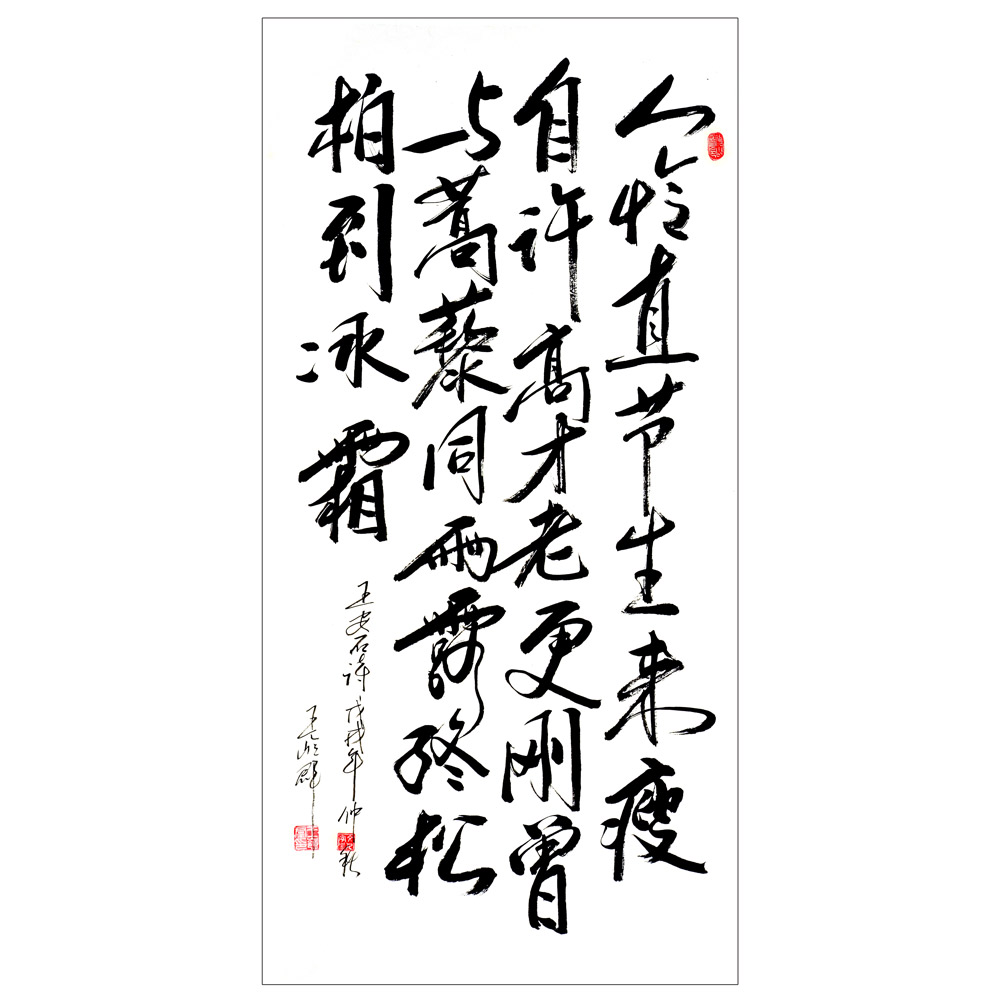 人怜直节生来瘦
自许高才老更刚曾
与蒿藜同雨露终松
柏到冰霜
王安石诗戊戌年仲秋